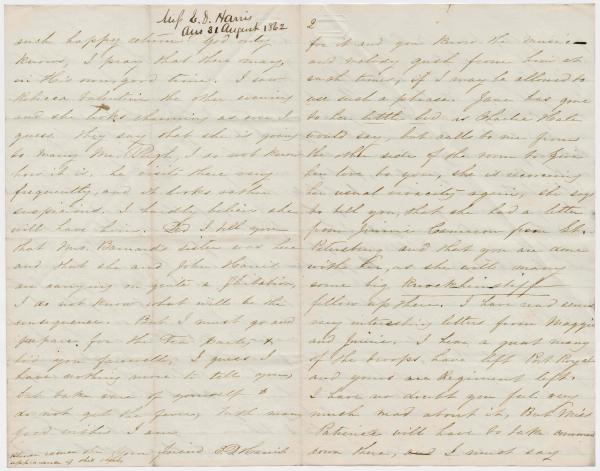 Miss E. D. Harris
Ans 31 August 1862
such happy return! God only
knows, I pray that there may,
in his own good time. I saw
Rebecca Valentine the other evening
and she looks charming as ever I
guess. They say that she is going
to marry Mr. Pugh, I do not know
how it is. he visits there very
frequently, and it looks rather
suspicious. I hardly believe she
will have him. Did I tell you
that Mrs. Barnard's sister was here
and that she and John Harris
are carrying on quite a flirtation,
I do not know what will be the
consequence. But I must go and
prepare for the Tea Party, &
bid you farewell, I guess I
have nothing more to tell you,
but take care of yourself &
do not get the fever, With many
good wishes I am
Your friend E D Harris
appearance of this note
2
for it and you know the music
and melody gush from him at
such times, if I may be allowed to
use such a phrase. Jane has gone
to her little bed as Charlie Hale
would say, but calls to me from
the other side of the room to give
her love to you, she is recovering
her usual vivacity again, she says
to tell you, that she had a letter
from Jennie Cameron from St.
Petersburg and that you are done
with her, as she will marry
some big Knockhimstiff
fellow up there. I have read some
very interesting letters from Maggie
and Jennie. I hear a great many
of the troops have left Port Royal
and yours one Regiment left.
I have no doubt you feel very
much mad about it, But Miss
Patience will have to take command
down there, and I must say